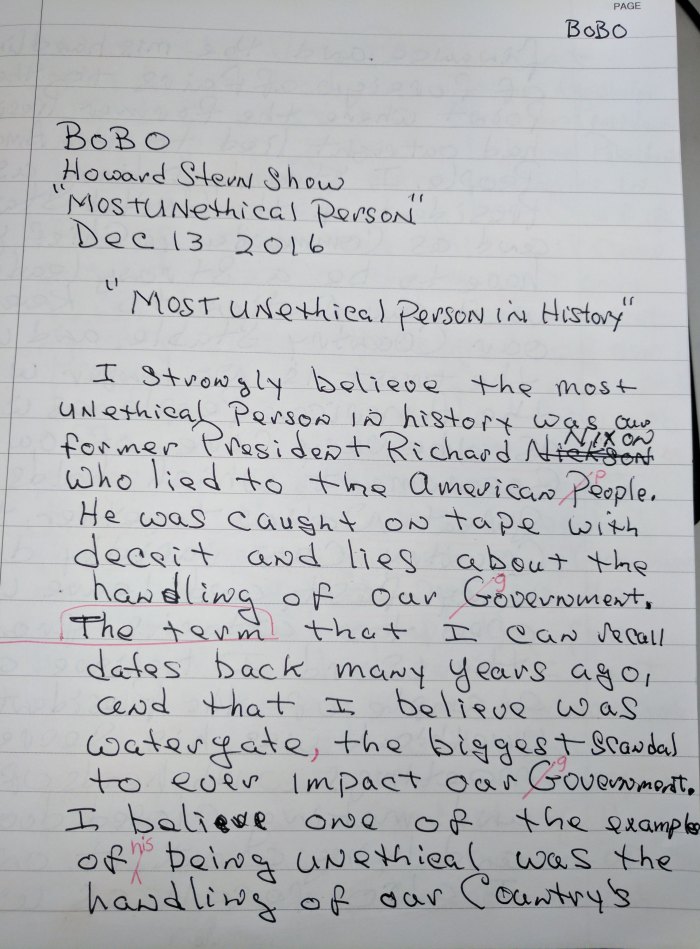 PAGE
BOBO
BOBO
Howard Stern Show
"Most UNethical Person"
Dec 13 2016
"MOST UNethical Person in History"
I strongly believe the most
UNethical Person IN history was our
Nixon
former President Richard Nickson
who lied to the American People.
p
He was caught on tape with
deceit and lies about the
handling of our Government.
g
The term that I can recall
dates back many years ago,
and that I believe was
watergate, the biggest scandal
to ever impact our Government.
g
I believe one of the example
of his being unethical was the
handling of our Country's